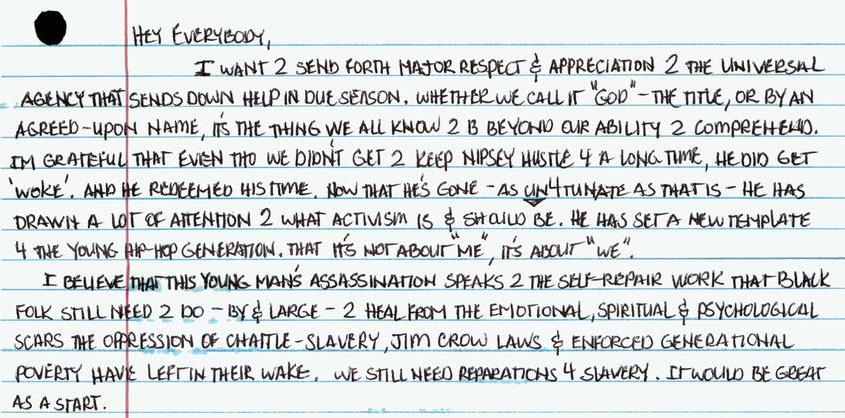 HEY EVERYBODY,
I WANT 2 SEND FORTH MAJOR RESPECT & APPRECIATION 2 THE UNIVERSAL
AGENCY THAT SENDS DOWN HELP IN DUE SEASON. WHETHER WE CALL IT "GOD" - THE TITLE, OR BY AN
AGREED-UPON NAME, IT'S THE THING WE ALL KNOW 2 B BEYOND OUR ABILITY 2 COMPREHEND.
IM GRATEFUL THAT EVEN THO WE DIDN'T GET 2 KEEP NIPSEY HUSTLE 4 A LONG TIME, HE DID GET
'WOKE'. AND HE REDEEMED HIS TIME. NOW THAT HE'S GONE - AS UN4TUNATE AS THAT IS - HE HAS
DRAWN A LOT OF ATTENTION 2 WHAT ACTIVISM IS & SHOULD BE. HE HAS SET A NEW TEMPLATE
4 THE YOUNG HIP-HOP GENERATION. THAT IT'S NOT ABOUT "ME", IT'S ABOUT "WE".
I BELIEVE THAT THIS YOUNG MAN'S ASSASSINATION SPEAKS 2 THE SELF-REPAIR WORK THAT BLACK
FOLK STILL NEED 2 DO - BY & LARGE - 2 HEAL FROM THE EMOTIONAL, SPIRITUAL & PSYCHOLOGICAL
SCARS THE OPPRESSION OF CHATTLE-SLAVERY, JIM CROW LAWS & ENFORCED GENERATIONAL
POVERTY HAVE LEFT IN THEIR WAKE. WE STILL NEED REPARATIONS 4 SLAVERY. IT WOULD BE GREAT
AS A START.